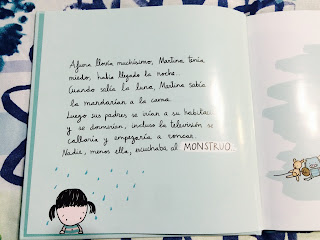 Afuera llovía muchísimo, Martina tenía
miedo, había llegado la noche.
Cuando salía la luna, Martina sabía
la mandarían a la cama.
Luego sus padres se irían a su habitación
y se dormirían, incluso la televisión se
callaría y empezaría a roncar.
Nadie, menos ella, escuchaba al MONSTRUO.